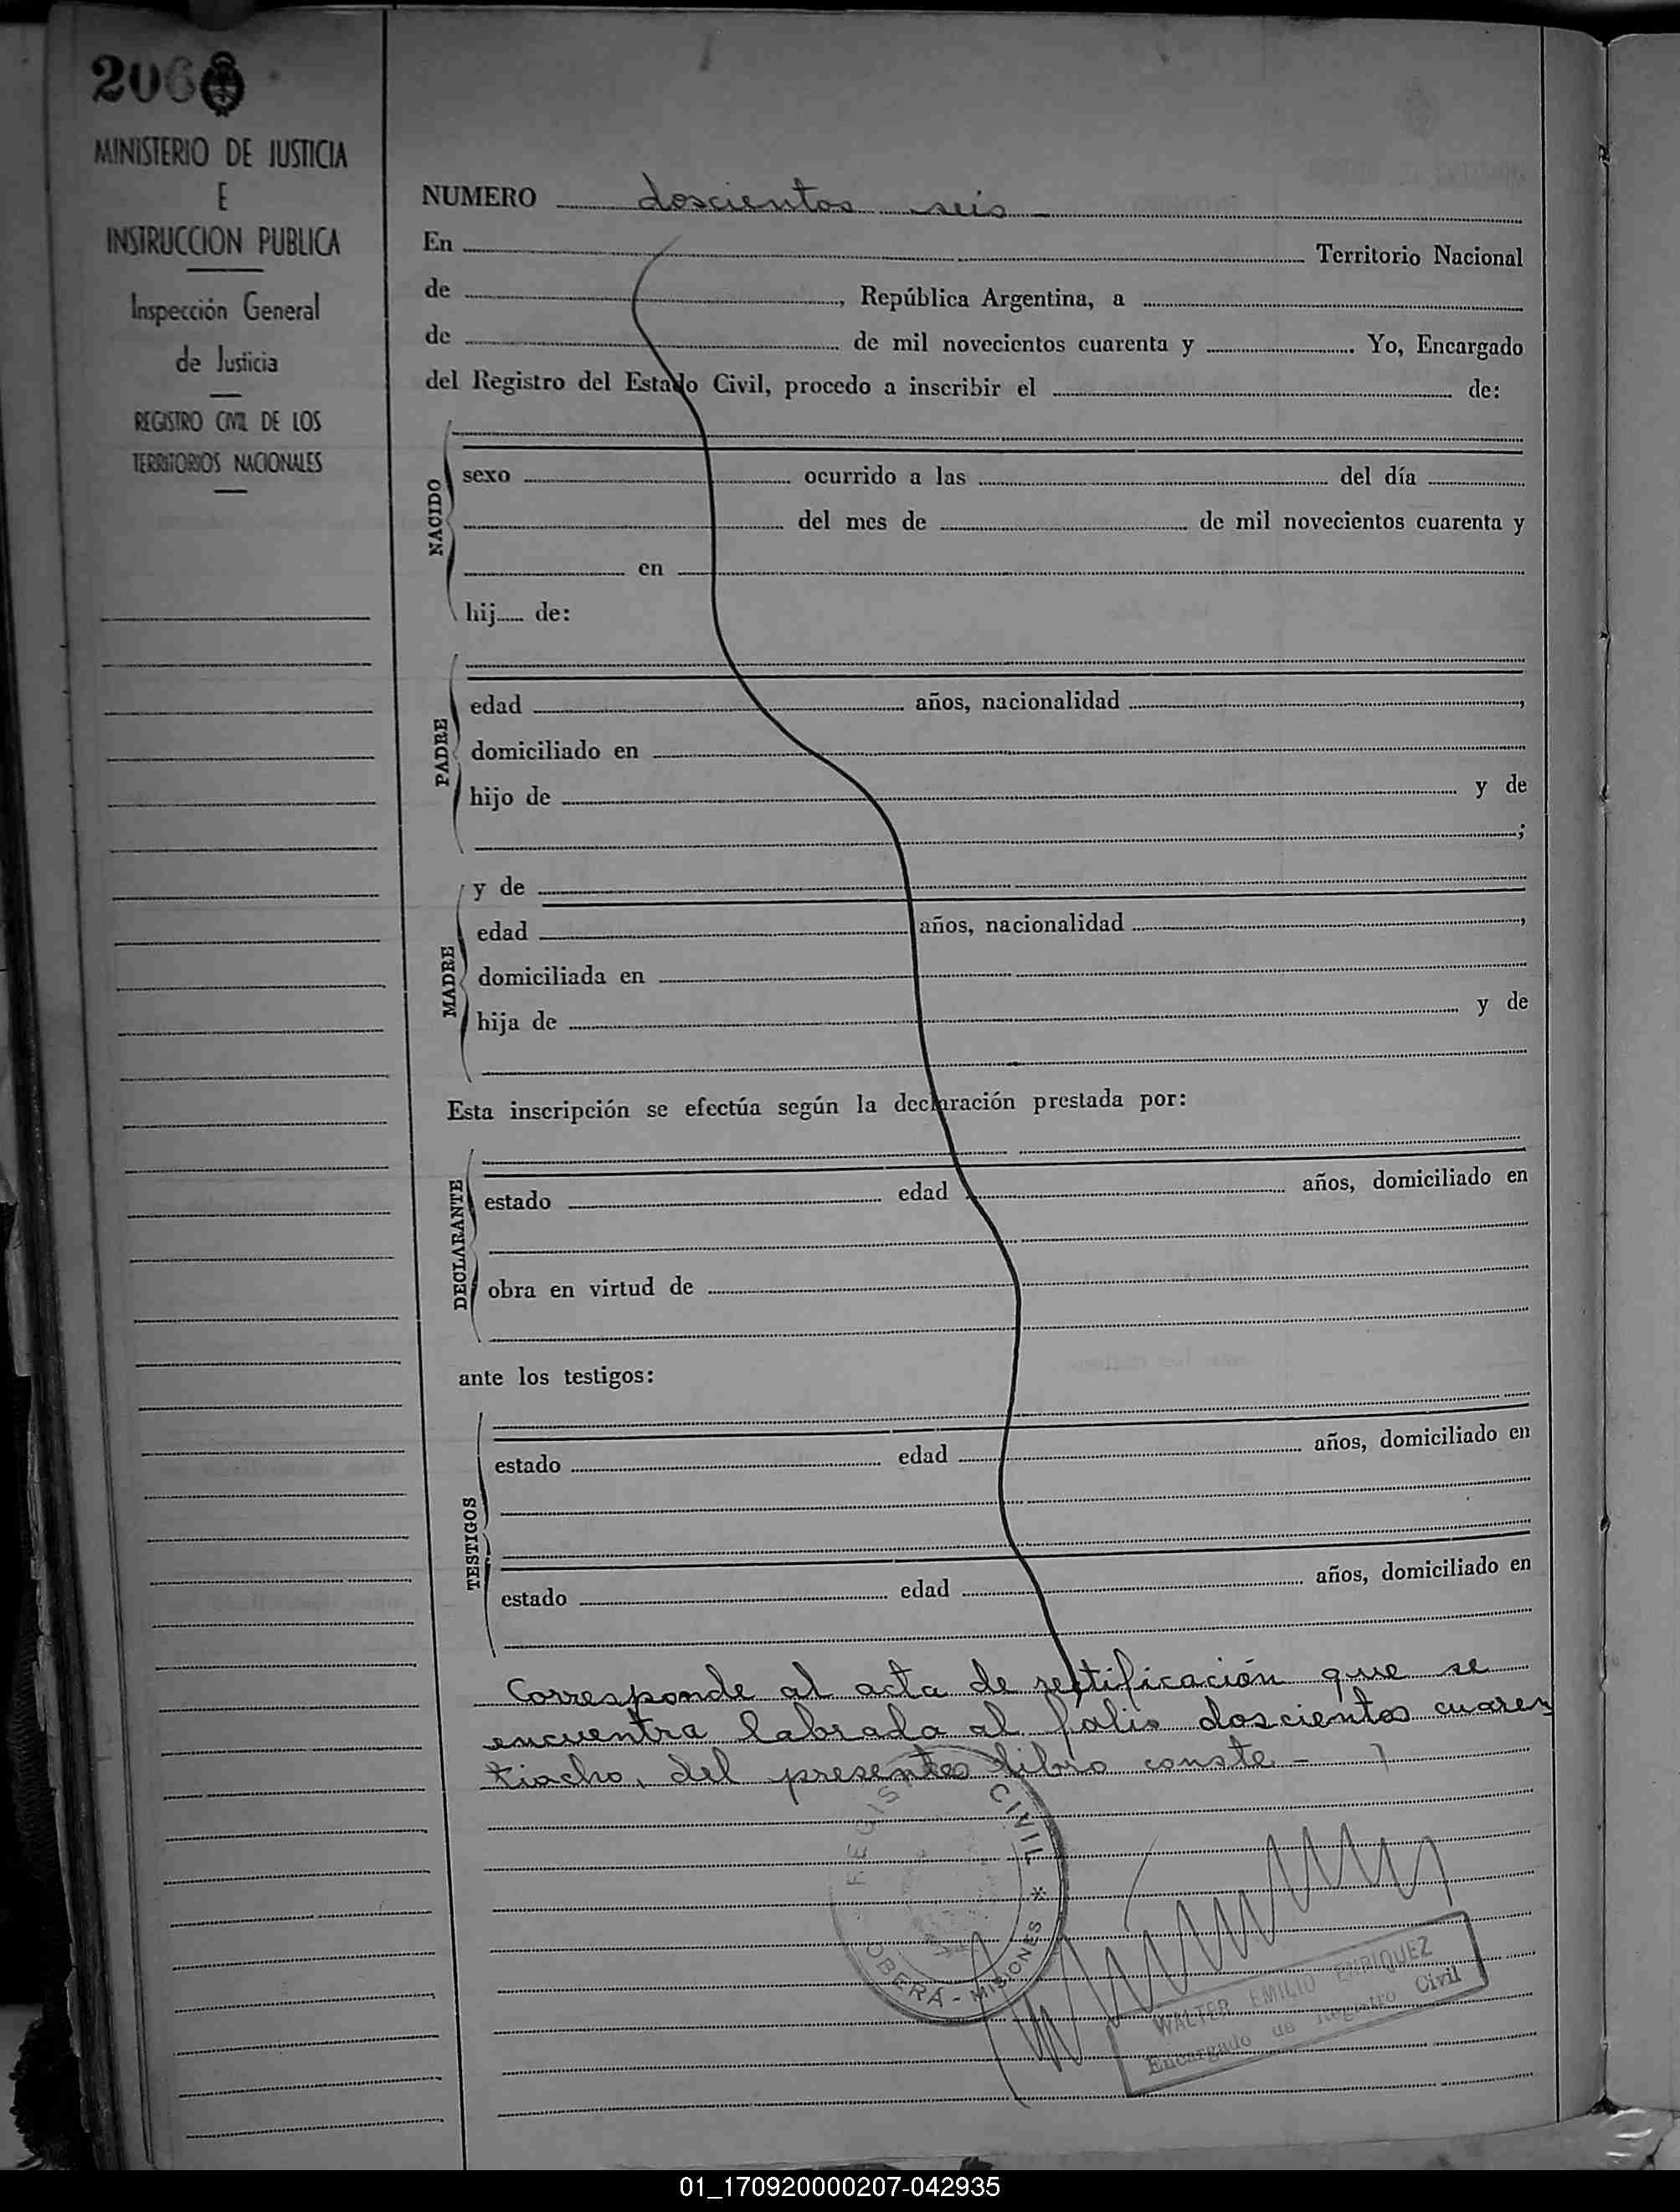 206
MINISTERIO DE JUSTICIA
E
INSTRUCCION PUBLICA
Inspección General
de Justicia
REGISTRO CIVIL DE LOS
TERRITORIOS NACIONALES
NUMERO doscientos seis
En Territorio Nacional
de , República Argentina, a
de de mil novecientos cuarenta y . Yo, Encargado
del Registro del Estado Civil, procedo a inscribir el de:
NACIDO
sexo ocurrido a las del día
del mes de de mil novecientos cuarenta y
en
hij...... de:
PADRE
edad años, nacionalidad ,
domiciliado en
hijo de y de
;
MADRE
y de
edad años, nacionalidad ,
domiciliada en
hija de y de
Esta inscripción se efectúa según la declaración prestada por:
DECLARANTE
estado edad años, domiciliado en
obra en virtud de
ante los testigos:
TESTIGOS
estado edad años, domiciliado en
estado edad años, domiciliado en
Corresponde al acta de rectificación que se
encuentra labrada al folio doscientos cuaren
tiocho, del presente libro conste -
REGIS CIVIL * OBERA - MISIONES
WALTER EMILIO ENRIQUEZ
Encargado de Registro Civil
01_170920000207-042935